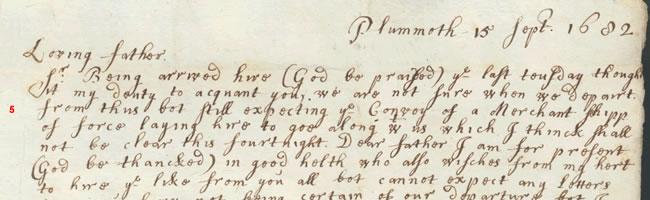 Plummoth 15 Sept. 1682
Loving father.
Sr. Being arrived hire (God be praised) ye last teusday thought
it my deuty to acquant you, we are not sure when we depairt.
5 from thus bot still expecting ye Convoy of a Merchant shipp
of force laying hire to goe along wt us which I thinck shall
not be clear this fourtnight. Dear father I am for present
(God be thancked) in good helth who also wishes from my hert
to hire ye like from you all bot cannot expect any letters
not being certain of our departure bot I